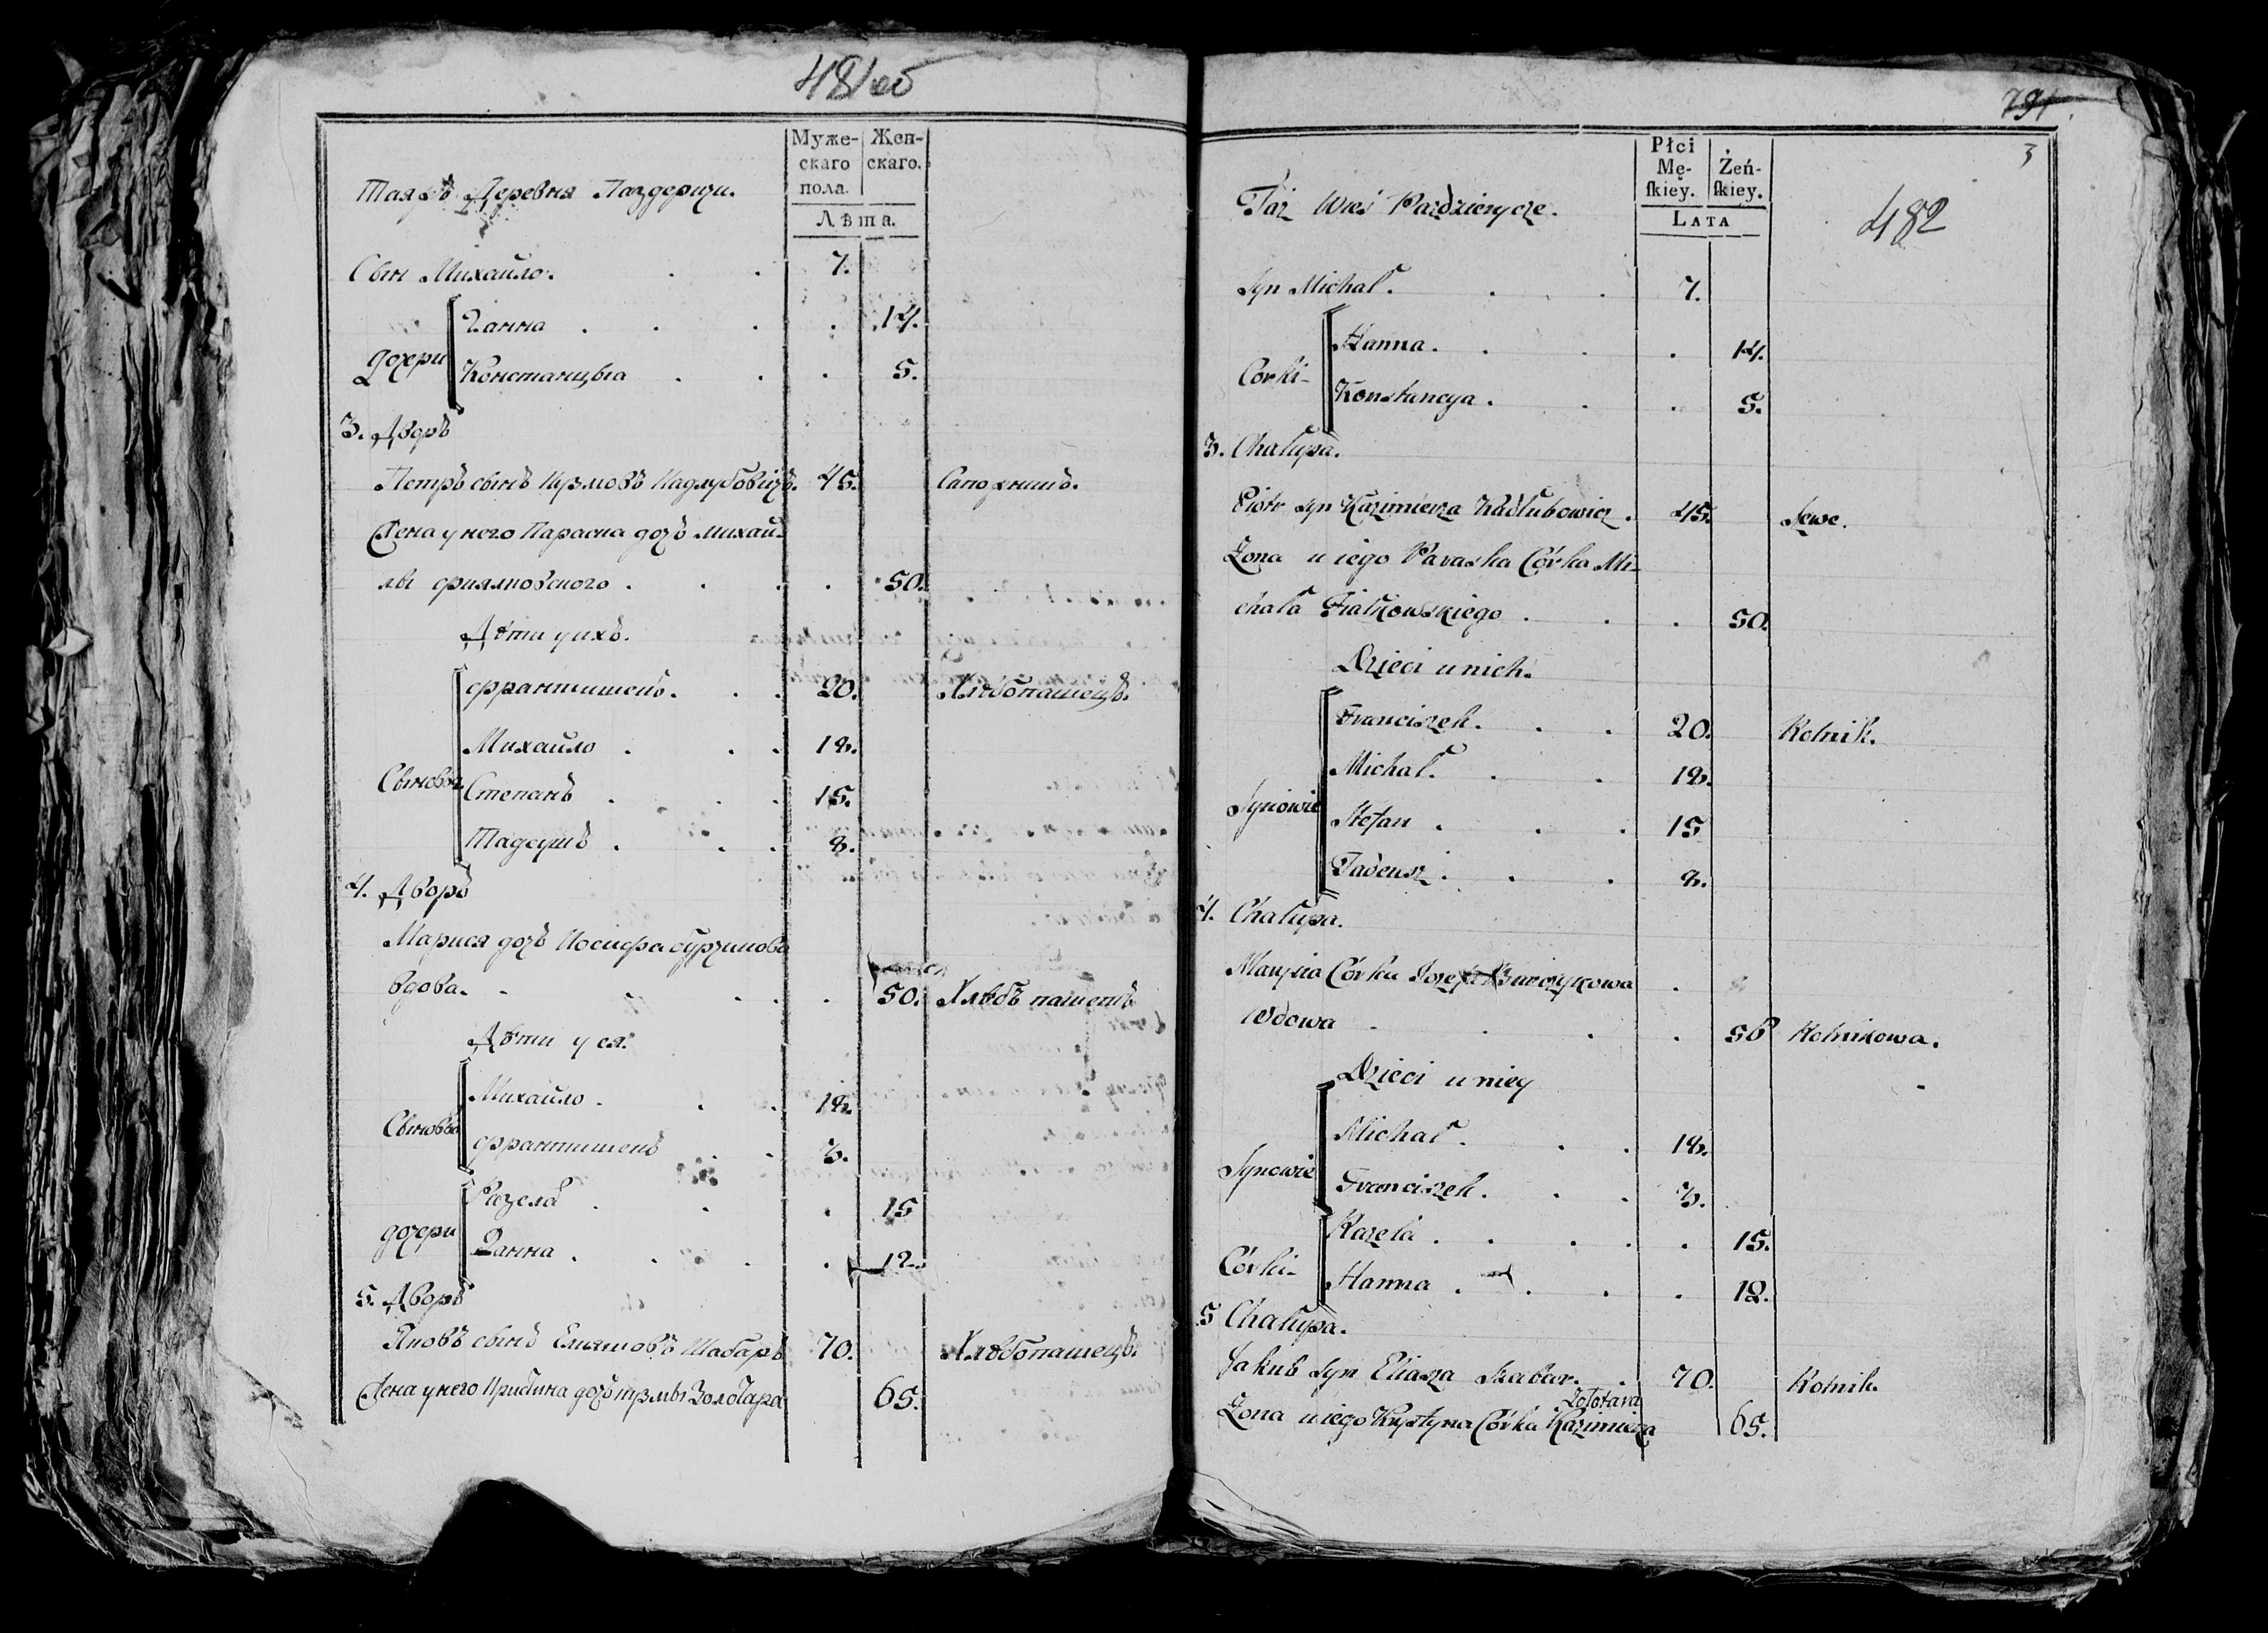 481об
Муже-
скаго
пола.
Жен-
скаго.
Лѣта.
Таяжъ Деревня Паздеричи.
Сын Михайло. 7.
Дочери
Ганна 14.
Констанцыа 5.
3. Дворъ
Петръ сынъ Кузмовъ Кадлубовичъ. 45. Сапожникъ.
Жена у него Параска дочъ Михай-
лы Фиялковского 50.
Дѣти у ихъ.
Сыновья
Франтишекъ. 20. Хлѣбопашецъ.
Михайло 18.
Степанъ 15.
Тадеушъ 8.
4. Дворъ
Марися дочъ Иосифа
вдова. 50. Хлѣбъ пашетъ
Дѣти у ея.
Сыновья
Михайло 18.
Франтишекъ 3.
Дочери
Розеля 15
Ганна 12.
5. Дворъ
Яковъ сынъ Елияшовъ Шабаръ 70. Хлѣбопашецъ.
Жена у него Кристина дочъ Кузмы Золотара 65.
791
3
482
Płci
Mę-
skiey.
Żeń-
skiey.
Lata
Taż Wieś Pazdzierycze.
Syn Michał. 7.
Corki
Hanna. 14.
Konstancya. 5.
3. Chałupa.
Piotr syn Kazimierza Kadłubowicz. 45. Szwc.
Żona u iego Paraska Córka Mi-
chała Fiałkowskiego 50.
Dzieci u nich.
Synowie
Franciszek. 20. Rolnik.
Michał. 18.
Stefan 15
Tadeusz. 8.
4. Chałupa.
Marysia Córka Jozefa
Wdowa 50 Rolnikowa.
Dzieci u niey
Synowie
Michał. 18.
Franciszek. 3.
Córki
Rozela 15.
Hanna 12.
5 Chałupa.
Jakub syn Eliasza Szabar. 70. Rolnik
Zołotara
Żona u iego Krystyna Córka Kazimierza 65.